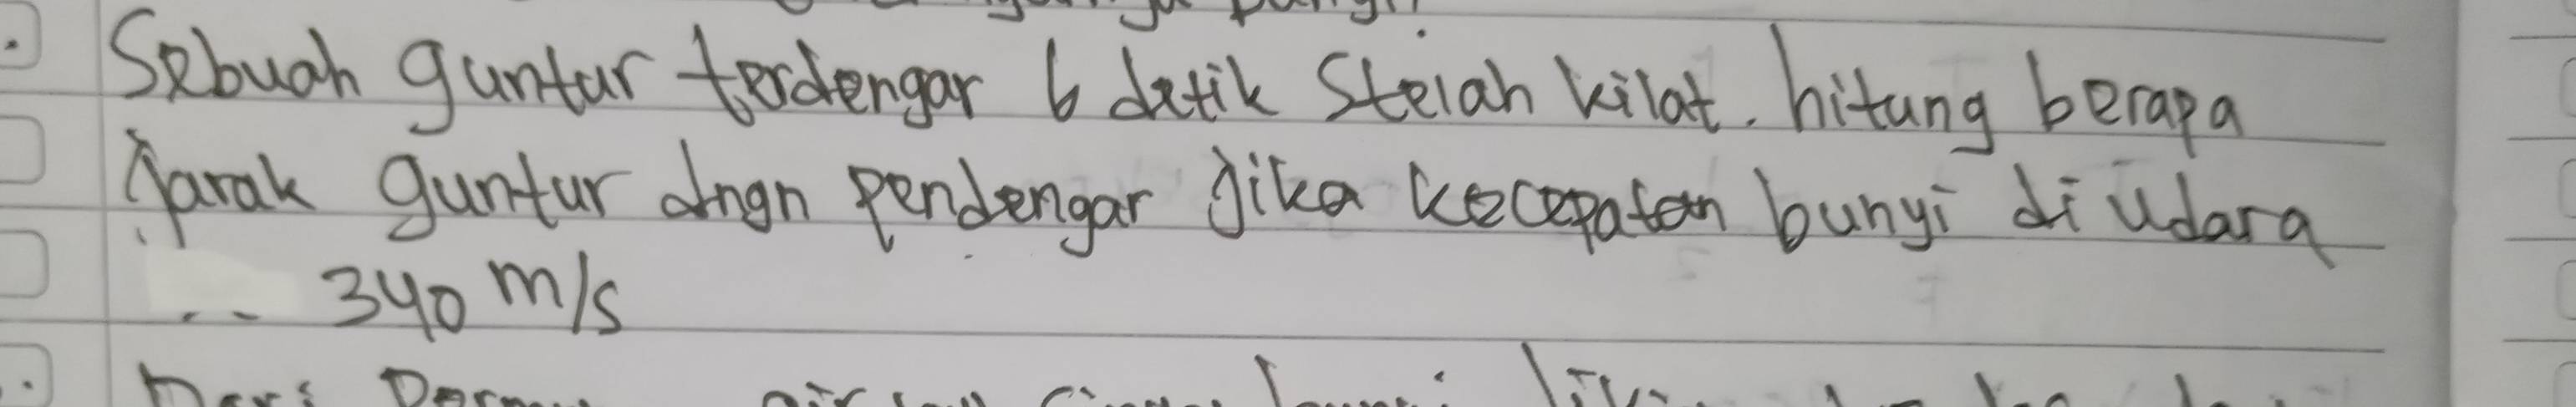 Sebuah guntur terdengar 6 detik Stelah kilat. hitung berapa
jarak guntur dngn pendengar jika kecepatan bunyi di udara
340 m/s